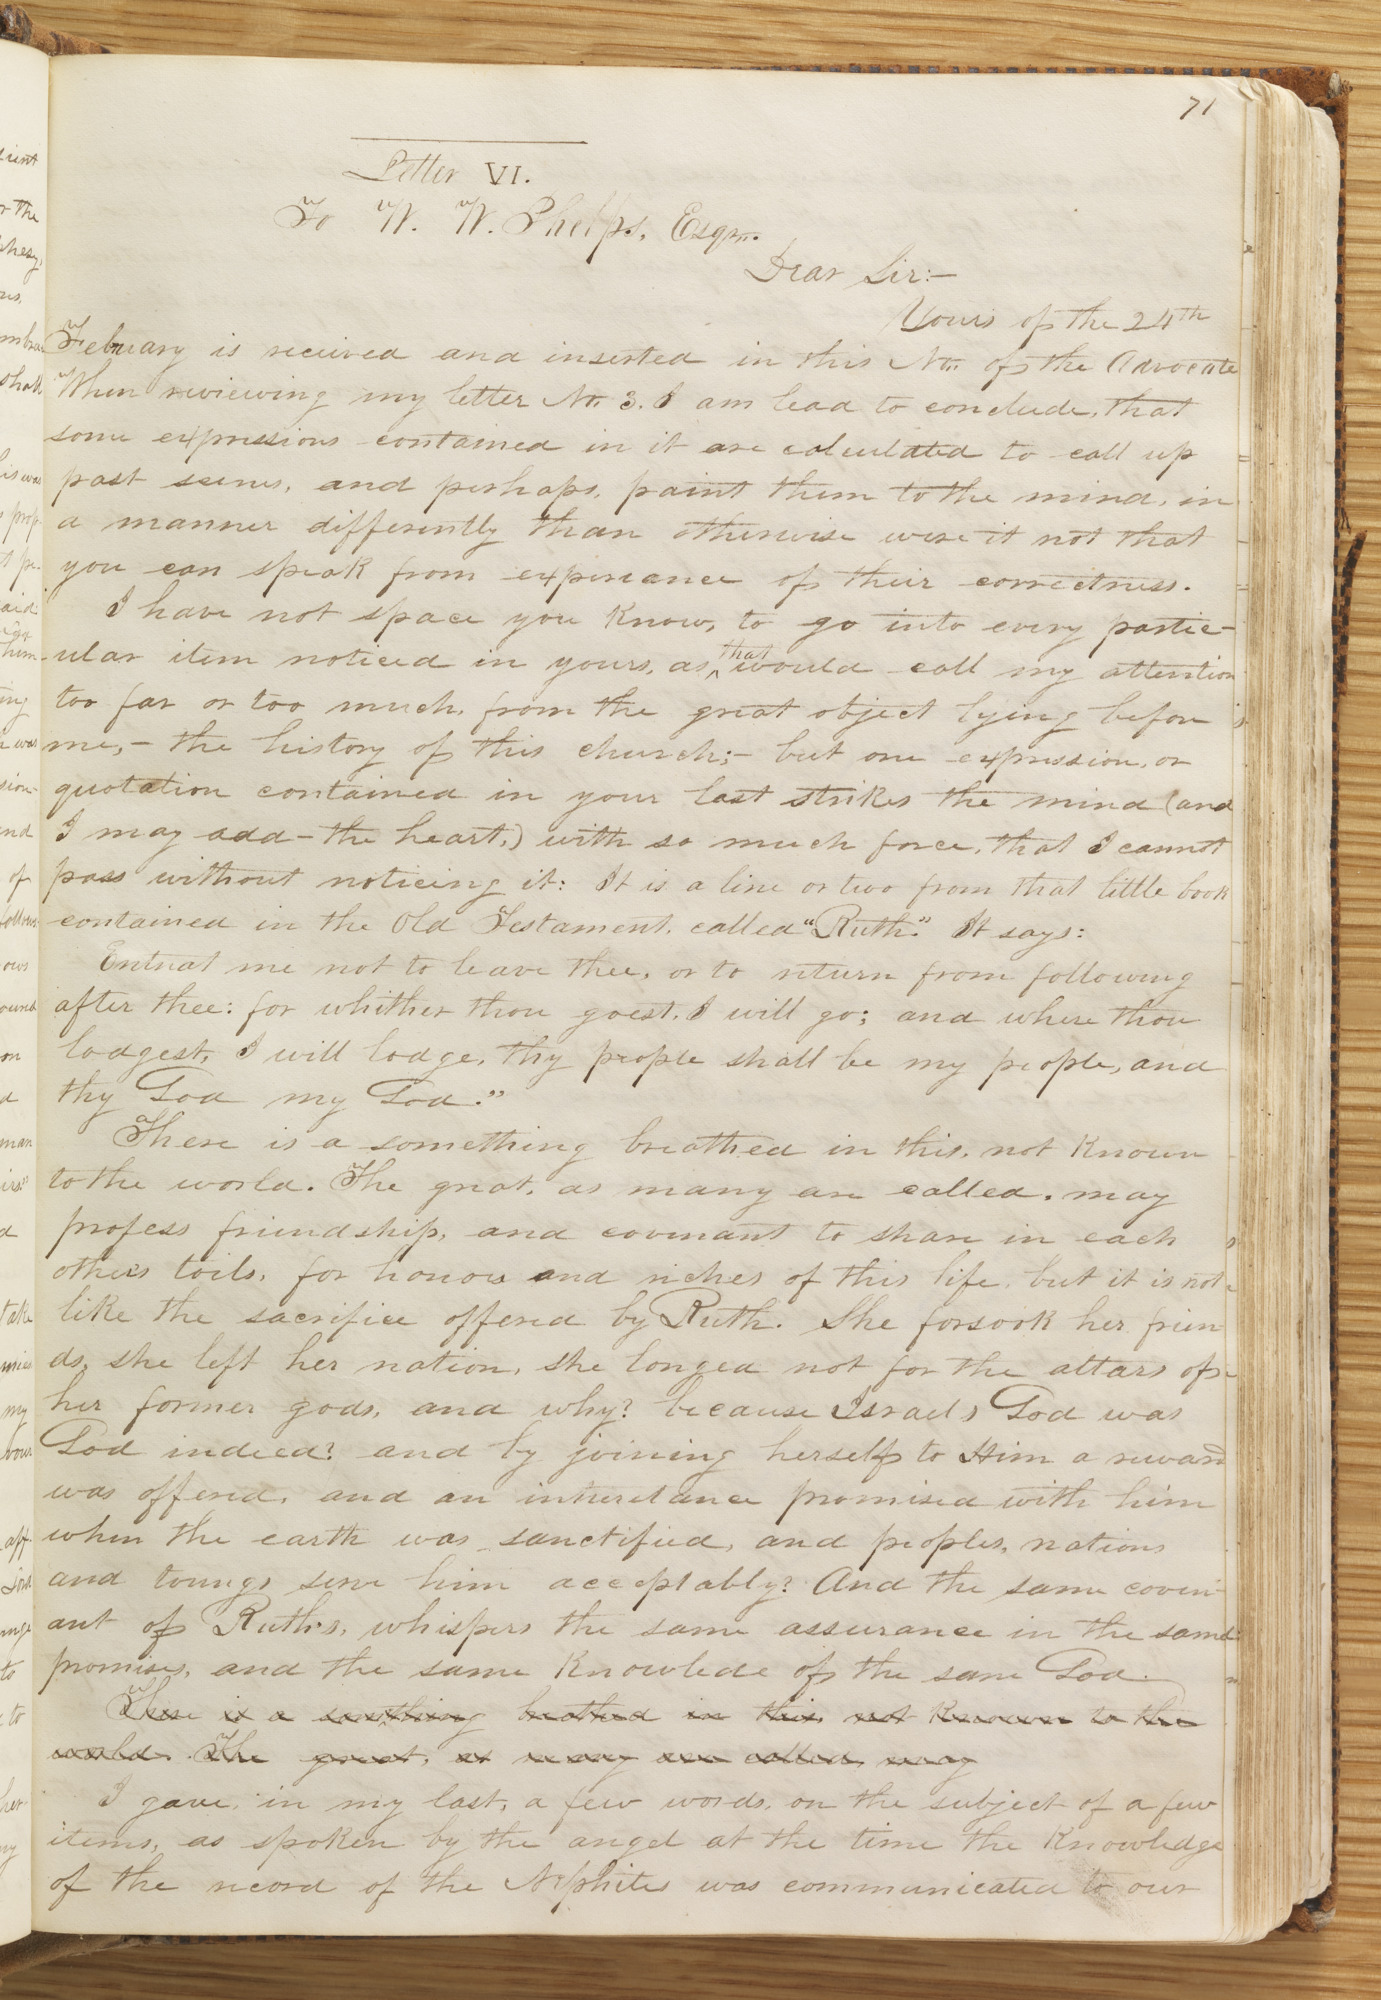 71
Letter VI.
To W. W. Phelps, Esqr.
Dear Sir:—
Yours of the 24th
February is received and inserted in this No. of the Advocate
When reviewing my letter No. 3. I am lead to conclude, that
some expressions contained in it are calculated to call up
past scenes, and perhaps, paint them to the mind, in
a manner differently than otherwise were it not that
you can speak from experiance of their correctness.
I have not space you know, to go into every partic-
ular item noticed in yours, as that would call my attention
too far or too much, from the great object lying before
me,— the history of this church;— but one expression, or
quotation contained in your last strikes the mind (and
I may add — the heart,) with so much force, that I cannot
pass without noticeing it: It is a line or two from that little book
contained in the Old Testament, called "Ruth." It says:
Entreat me not to leave thee, or to return from following
after thee: for whither thou goest, I will go; and where thou
lodgest, I will lodge, thy people shall be my people, and
thy God my God."
There is a something breathed in this, not known
to the world. The great, as many are called, may
profess friendship, and covenant to share in each
others toils, for honors and riches of this life, but it is not
like the sacrifice offered by Ruth. She forsook her frien
ds, she left her nation, she longed not for the altars of
her former gods, and why? because Israels God was
God indeed? and by joining herself to Him a reward
was offered, and an inheretance promised with him
when the earth was sanctified, and peoples, nations
and toungs serve him acceptably? And the same coven-
ant of Ruth's, whispers the same assurance in the same
promises, and the same knowlede of the same God.
There is a something breathed in this, not known to the
world. The great, as many are called, may
I gave, in my last, a few words, on the subject of a few
items, as spoken by the angel at the time the knowledge
of the record of the Nephites was communicated to our